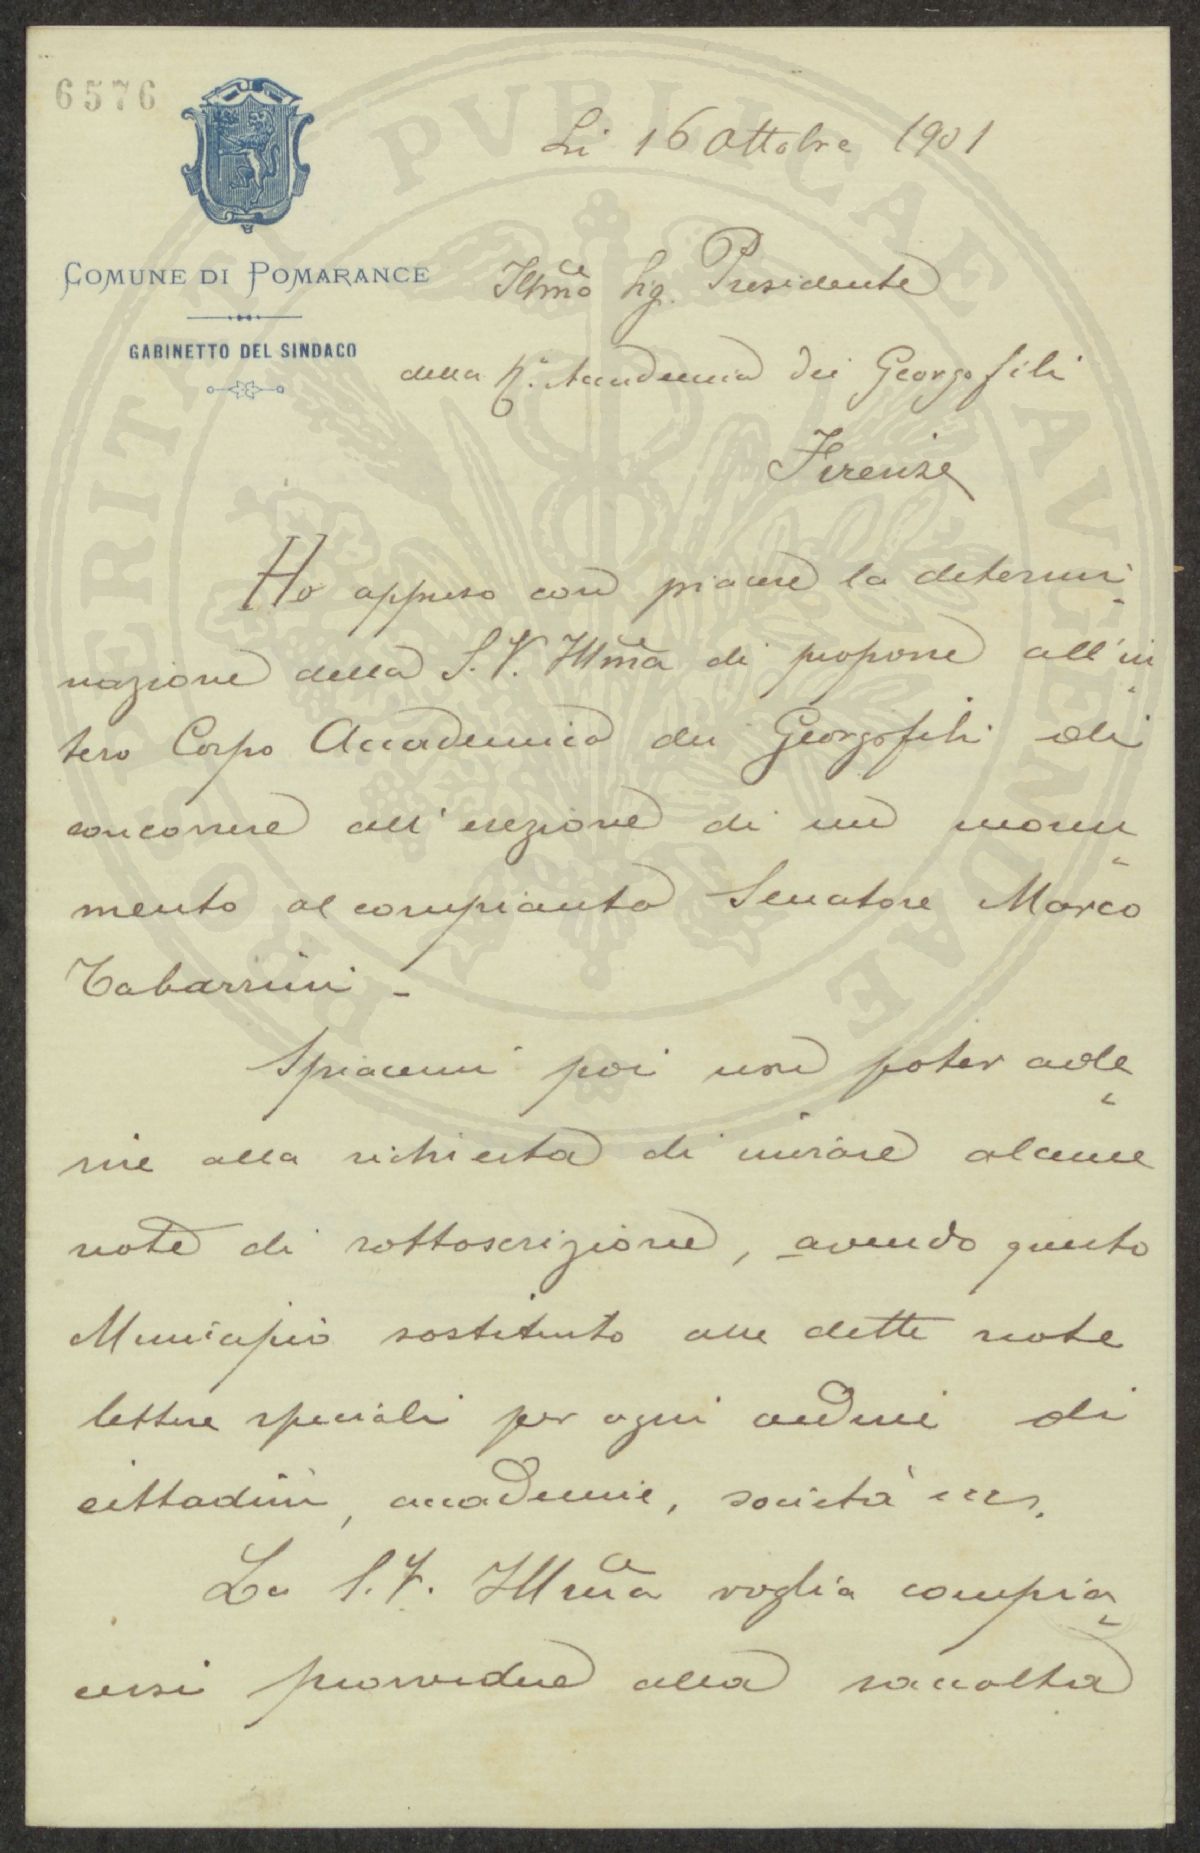 6576
Li 16 Ottobre 1901
COMUNE DI POMARANCE
GABINETTO DEL SINDACO
Illmo Sig. Presidente
della R. Accademia dei Georgofili
Firenze
Ho appreso con piacere la determi-
nazione della S.V. Illma di proporre all'in-
tero Corpo Accademico dei Georgofili di
concorrere all'erezione di un monu-
mento al compianto Senatore Marco
Tabarrini -
Spiacemi poi non poter ade-
rire alla richiesta di inviare alcune
note di sottoscrizione, avendo questo
Municipio sostituito alle dette note
lettere speciali per ogni ordine di
cittadini, accademie, società ecc.
La S.V. Illma voglia compia-
cersi provvedere alla raccolta
PROSPERITATI PVBLICAE AVGENDAE